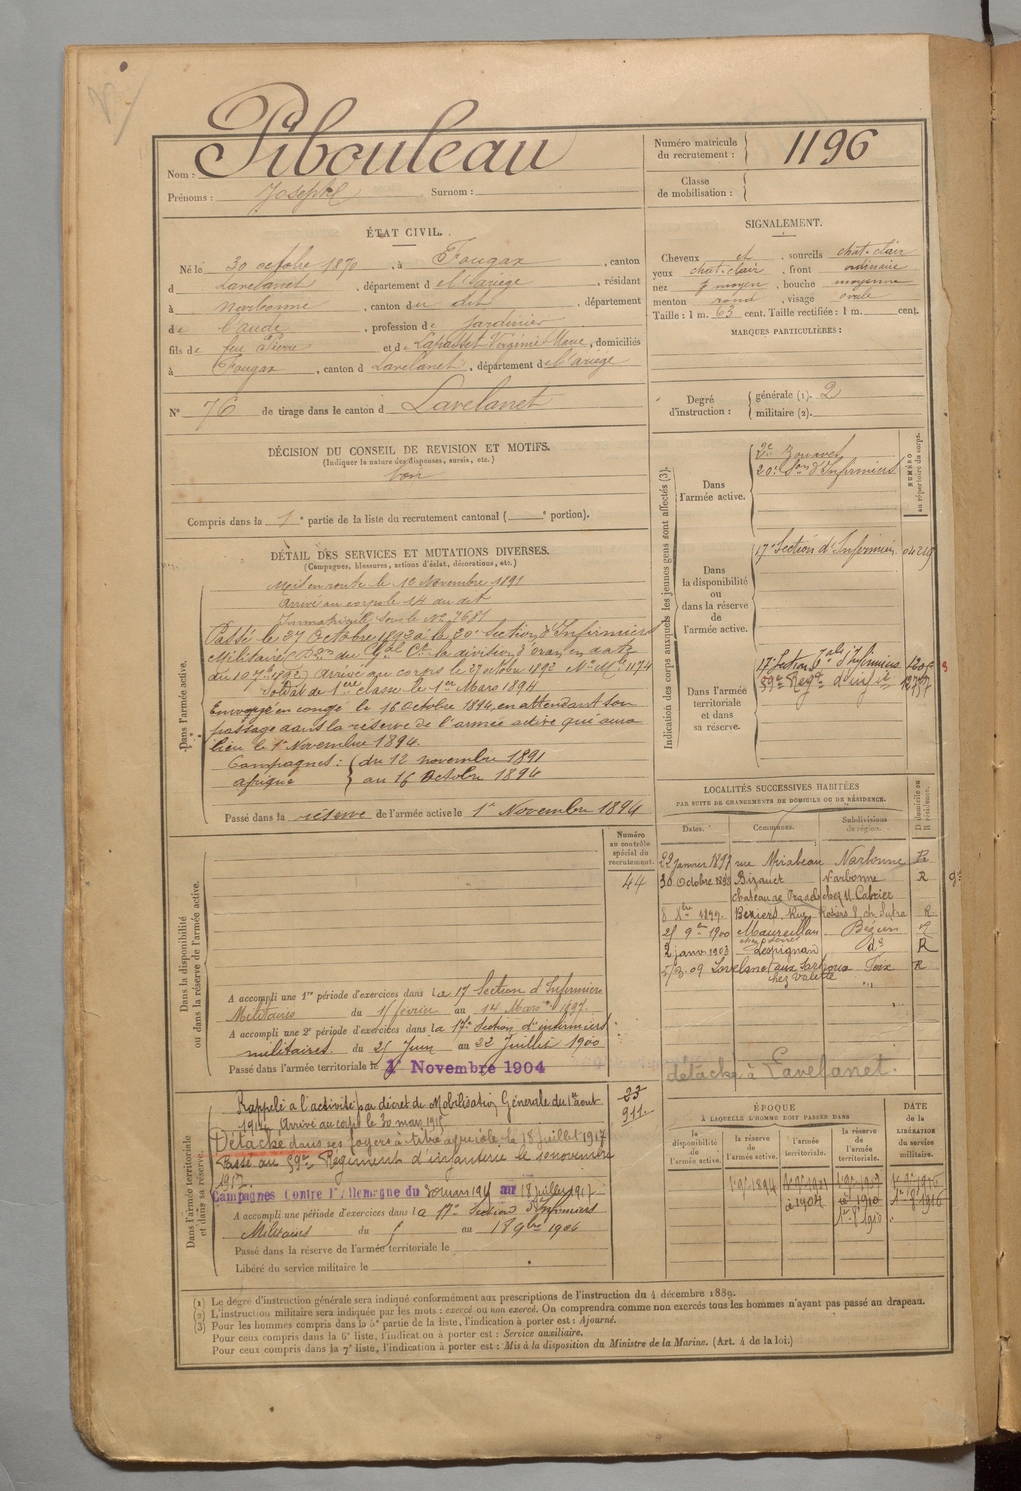 Nom : Pibouleau
Prénoms : Joseph Surnom :
Numéro matricule du recrutement : 1196
Classe de mobilisation :
ÉTAT CIVIL.
Né le 30 octobre 1870, à Fougax, canton
d Lavelanet, département d e l'ariège, résidant
à Narbonne, canton d u dit, département
de l'aude, profession de jardinier
fils de feu Pierre et d Lapasset Virginie Marie, domiciliés
à Fougax, canton d Lavelanet, département d e l'ariège
N° 76 de tirage dans le canton d Lavelanet
SIGNALEMENT.
Cheveux et, sourcils chat. clair
yeux chat. clair, front ordinaire
nez moyen, bouche moyenne
menton rond, visage ovale
Taille : 1 m. 63 cent. Taille rectifiée : 1 m. cent.
MARQUES PARTICULIÈRES :
Degré d'instruction : générale (1). 2
militaire (2).
DÉCISION DU CONSEIL DE REVISION ET MOTIFS.
(Indiquer la nature des dispenses, sursis, etc.)
bon
Compris dans la 1e partie de la liste du recrutement cantonal ( e portion).
DÉTAIL DES SERVICES ET MUTATIONS DIVERSES.
(Campagnes, blessures, actions d'éclat, décorations, etc.)
Dans l'armée active.
Mis en route le 10 Novembre 1891
Arrivé au corps le 14 du dit
Immatriculé sous le No 7681
Passé le 27 Octobre 1893 à la 20e Section d'Infirmiers
Militaires (Don du Gal Ct la division d'oran en date
du 10 7bre 1893) arrivé au corps le 27 octobre 1893 No Mle 1174
Soldat de 1ère classe le 1er Mars 1894
Envoyé en congé le 16 Octobre 1894, en attendant son
passage dans la réserve de l'armée active qui aura
lieu le 1er Novembre 1894.
Campagnes : du 12 novembre 1891
afrique au 16 Octobre 1894
Passé dans la réserve de l'armée active le 1er Novembre 1894
Indication des corps auxquels les jeunes gens sont affectés (3).
NUMÉRO au répertoire du corps.
Dans l'armée active.
2e Zouaves
20e Son d'Infirmiers
Dans la disponibilité ou dans la réserve de l'armée active.
17e Section d'Infirmiers
Dans l'armée territoriale et dans sa réserve.
17e Section d'Infirmiers
59e Régt d'infie
LOCALITÉS SUCCESSIVES HABITÉES
PAR SUITE DE CHANGEMENTS DE DOMICILE OU DE RÉSIDENCE.
Dates. Communes. Subdivisions de région. D domicile ou R résidence.
22 janvier 1897 rue Mirabeau Narbonne
30 Octobre 1898 Bizanet Narbonne R
1899. Béziers, Rue R
21 9bre 1900 Maureilhan Béziers R
2 janv 1903 Lespignan do R
Lavelanet Foix R
chez Valette
détaché à Lavelanet.
Numéro au contrôle spécial du recrutement.
44
Dans la disponibilité ou dans la réserve de l'armée active.
A accompli une 1re période d'exercices dans la 17e Section d'Infirmiers
Militaires du 15 février au 14 Mars 1897.
A accompli une 2e période d'exercices dans la 17e Section d'infirmiers
militaires. du 25 Juin au 22 Juillet 1900
Passé dans l'armée territoriale le 1er Novembre 1904
Dans l'armée territoriale et dans sa réserve.
Rappelé à l'activité par décret de Mobilisation Générale du 1er août
1914. Arrivé au corps le 30 mars 1915
Détaché dans ses foyers à titre agricole le 18 juillet 1917
Passé au 59e Régiment d'infanterie le 10 novembre
1917.
Campagnes Contre l'Allemagne du 30 mars 1915 au 18 juillet 1917
A accompli une période d'exercices dans la 17e Section d'Infirmiers
Militaires du au 18 9bre 1906
Passé dans la réserve de l'armée territoriale le
Libéré du service militaire le
23
911.
ÉPOQUE À LAQUELLE L'HOMME DOIT PASSER DANS
DATE de la LIBÉRATION du service militaire.
la disponibilité de l'armée active.
la réserve de l'armée active.
l'armée territoriale.
la réserve de l'armée territoriale.
1er 9bre 1894
(1) Le degré d'instruction générale sera indiqué conformément aux prescriptions de l'instruction du 4 décembre 1889.
(2) L'instruction militaire sera indiquée par les mots : exercé ou non exercé. On comprendra comme non exercés tous les hommes n'ayant pas passé au drapeau.
(3) Pour les hommes compris dans la 5e partie de la liste, l'indication à porter est : Ajourné.
Pour ceux compris dans la 6e liste, l'indication à porter est : Service auxiliaire.
Pour ceux compris dans la 7e liste, l'indication à porter est : Mis à la disposition du Ministre de la Marine. (Art. 4 de la loi.)